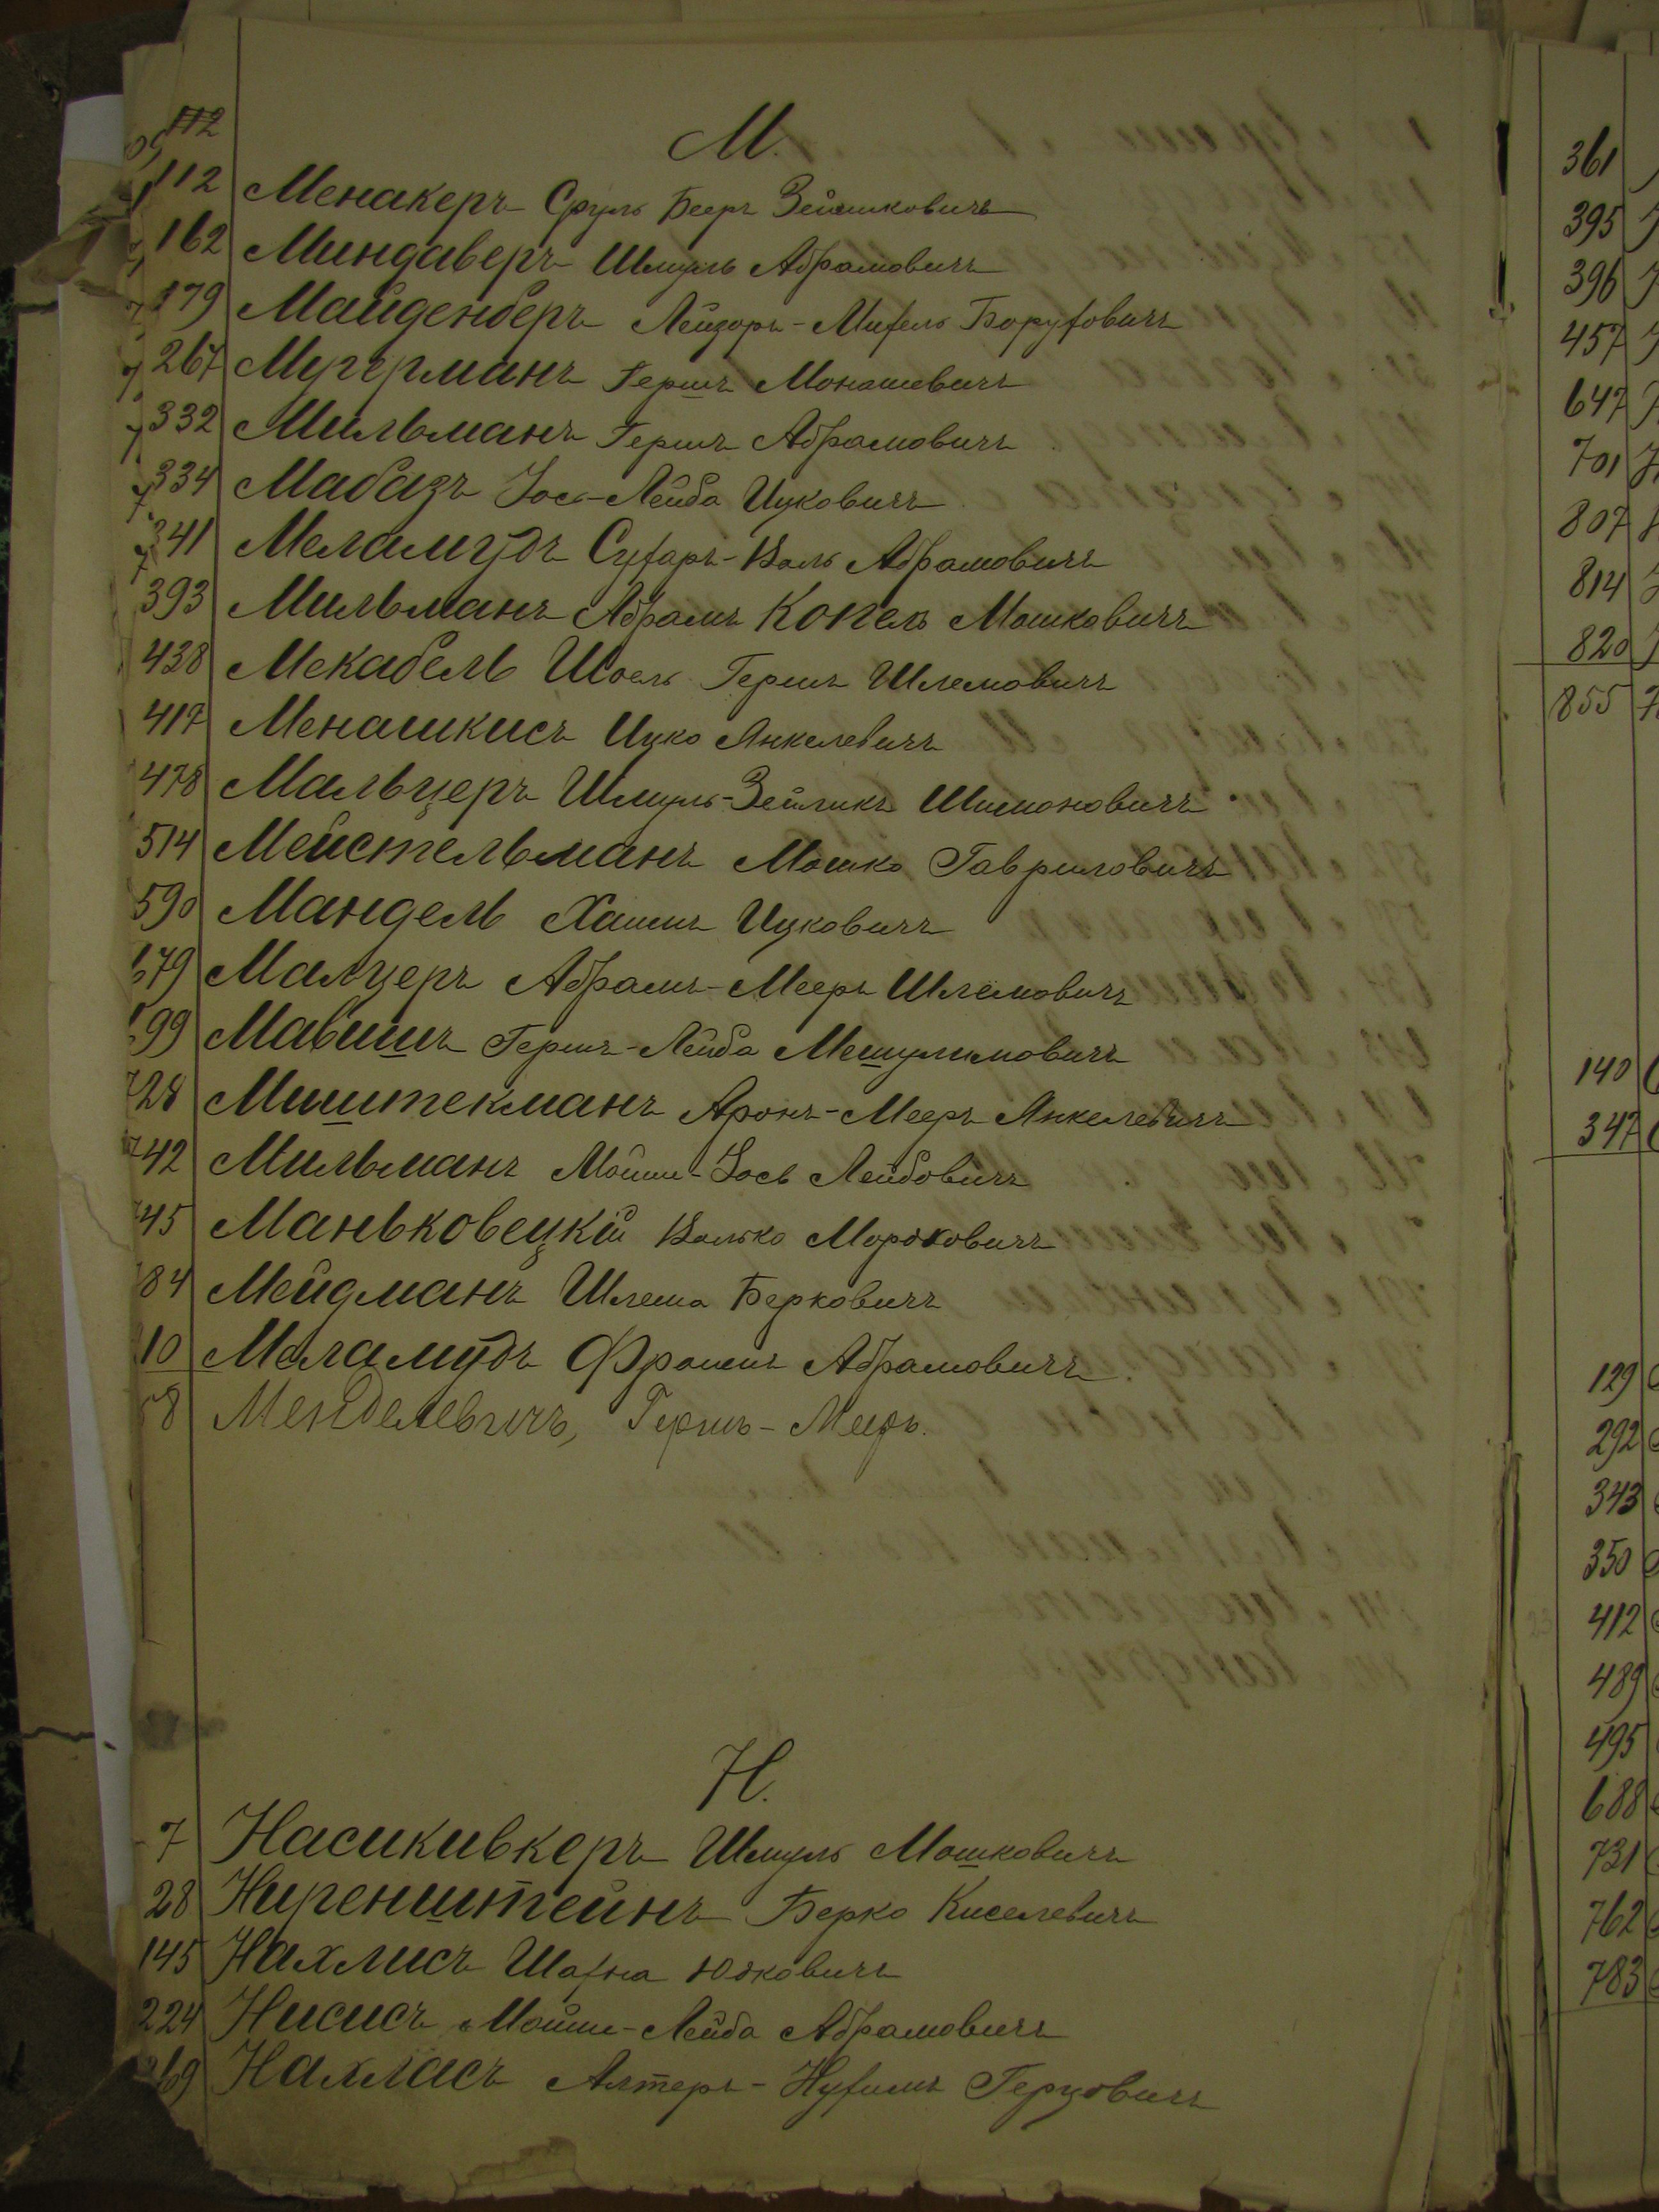 112
М.
112 Менакеръ Сруль Бееръ Зейликовичъ
162 Миндаверъ Шмуль Абрамовичъ
179 Майденберъ Лейзоръ-Михель Борухович
267 Мугерманъ Гершъ Монашевичъ
332 Мильманъ Гершъ Абрамовичъ
334 Мабазъ Iось-Лейба Ицковичъ
341 Меламудъ Сухаръ-Воль Абрамовичъ
393 Мильманъ Абрамъ Копель Мошковичъ
438 Мекабель Шоель Гершъ Шлемовичъ
417 Менашкисъ Ицко Янкелевичъ
478 Мальцеръ Шмуль-Зейликъ Шимоновичъ
514 Мейстельманъ Мошко Гавриловичъ
590 Мандель Хаимъ Ицковичъ
679 Малцеръ Абрамъ-Мееръ Шлемовичъ
99 Мавишъ Гершъ-Лейба Мешулимовичъ
728 Миштекманъ Аронъ-Мееръ Янкелевичъ
742 Мильманъ Мойши-Iось Лейбовичъ
745 Маньковецкiй Волько Мордковичъ
84 Мейдманъ Шлема Берковичъ
10 Меламудъ Фроимъ Абрамовичъ.
8 Менделевичъ, Гершъ-Мееръ.
Н.
7 Насикивкеръ Шмуль Мошковичъ
28 Ниренштейнъ Берко Киселевичъ
145 Нахлисъ Шахна Юзковичъ
224 Нисисъ Мойши-Лейба Абрамовичъ
269 Нахласъ Алтеръ-Нухимъ Герцовичъ
361
395
396
457
647
701
807
814
820
855
140
347
129
292
343
350
412
489
495
688
731
762
783